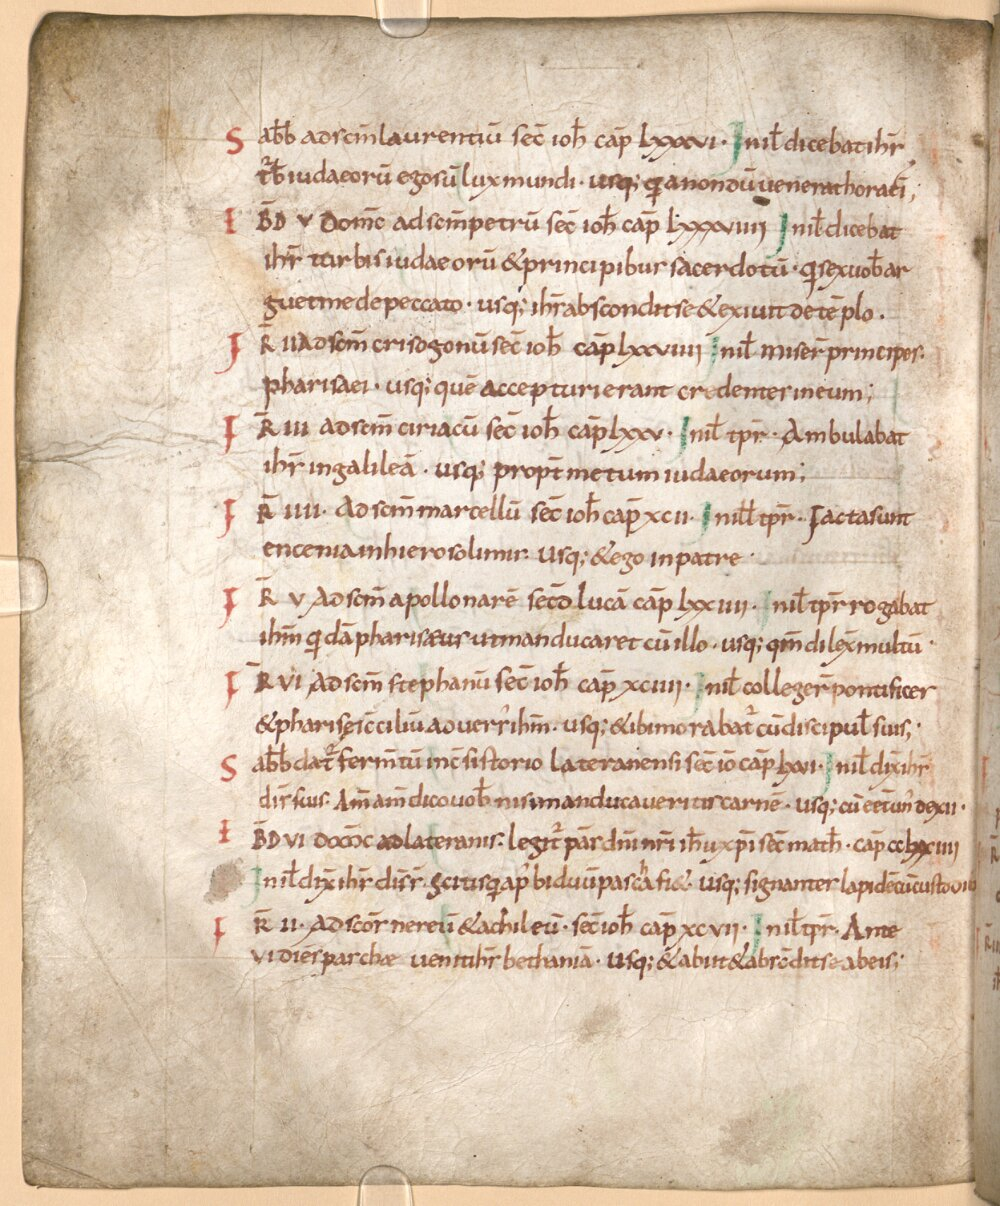 Sabb̄ ad scm̄ laurentiū sec̄ ioh̄ cap̄ lxxxvi · In il̄l dicebat ihs̄
tb̄ iudaeorū ego sū lux mundi · usq; q̄a nondū venerat hora ei;
EBD̄ V Domc̄ ad scm̄ petrū sec̄ ioh̄ cap̄ lxxxviiii In il̄l dicebat
ihs̄ turbis iudaeorū & principibus sacerdotū · q̄s ex vob̄ ar
guet me de peccato · usq; ihs̄ abscondit se & exivit de tēplo .
FR̄ II Ad scm̄ crisogonū sec̄ ioh̄ cap̄ lxxviiii In il̄l miser̄ principes
pharisaei · usq; quē accepturi erant credentes in eum;
FR̄ III Ad scm̄ ciriacū sec̄ ioh̄ cap̄ lxxv · In il̄l tp̄r · Ambulabat
ihs̄ in galileā · usq; propt̄ metum iudaeorum;
FR̄ IIII · Ad scm̄ marcellū sec̄ ioh̄ cap̄ xcii · In il̄l tp̄r · Facta sunt
encenia in hierosolimis · usq; & ego in patre ·
FR̄ V Ad scm̄ apollonarē sec̄d lucā cap̄ lxxiiii · In il̄l tp̄r rogabat
ihm̄ q̄dā phariseus ut manducaret cū illo · usq; qm̄ dilex̄ multū ·
FR̄ VI Ad scm̄ stephanū sec̄ ioh̄ cap̄ xciiii · In il̄l colleger̄ pontifices
& pharisei c̄ciliū advers̄ ihm̄ · usq; & ibi morabat̄ cū discipul̄ suis;
Sabb̄ dat̄ fermtū in c̄sistorio lateranensi sec̄ io cap̄ lxvi · In il̄l dix̄ ihs̄
dis̄ suis · Am̄ am̄ dico vob̄ nisi manducaveritis carnē · usq; cū eētun̄ de xii ·
EBD̄ VI Domc̄ ad lateranis · legit̄ pas̄ dn̄i nr̄i ih̄u xp̄i sec̄ math̄ · cap̄ cclxxiiii
In il̄l dix̄ ihs̄ dis̄ · Scitis q̄ ap̄ biduū pascā fi& · usq; signantes lapidē cū custodib
FR̄ II · Ad scor̄ nereū & achileū · sec̄ ioh̄ cap̄ xcvii · In il̄l tp̄r · Ante
vi dies paschae venit ihs̄ bethaniā · usq; & abiit & abscōdit se ab eis;